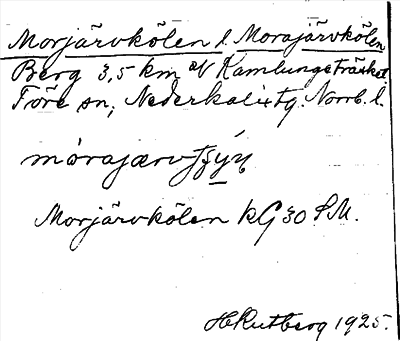 Morjärvkölen l. Morajärvkölen
Berg 3,5 km N Kamlungeträsket
Töre sn, Nederkalix tg. Norrb. l.
Morjärvkölen kG 30 S.M.
H Rutberg 1925.